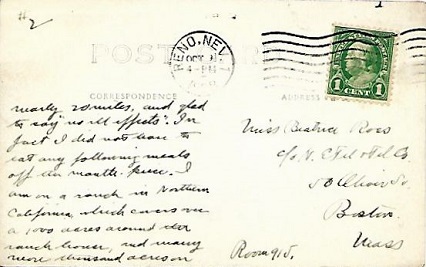 #2
POST CARD
RENO, NEV.
OCT
4-PM
1 CENT 1
CORRESPONDENCE
ADDRESS
nearly 20 miles, and glad
to say "no ill effects". In
fact I did not have to
eat any following meals
off the mantle-piece. I
am on a ranch in Northern
California, which covers over
a 1000 acres around the
ranch house, and many
more thousand acres on
Miss Beatrice Ross
c/o
50 Oliver St.
Boston
Mass
Room 915.